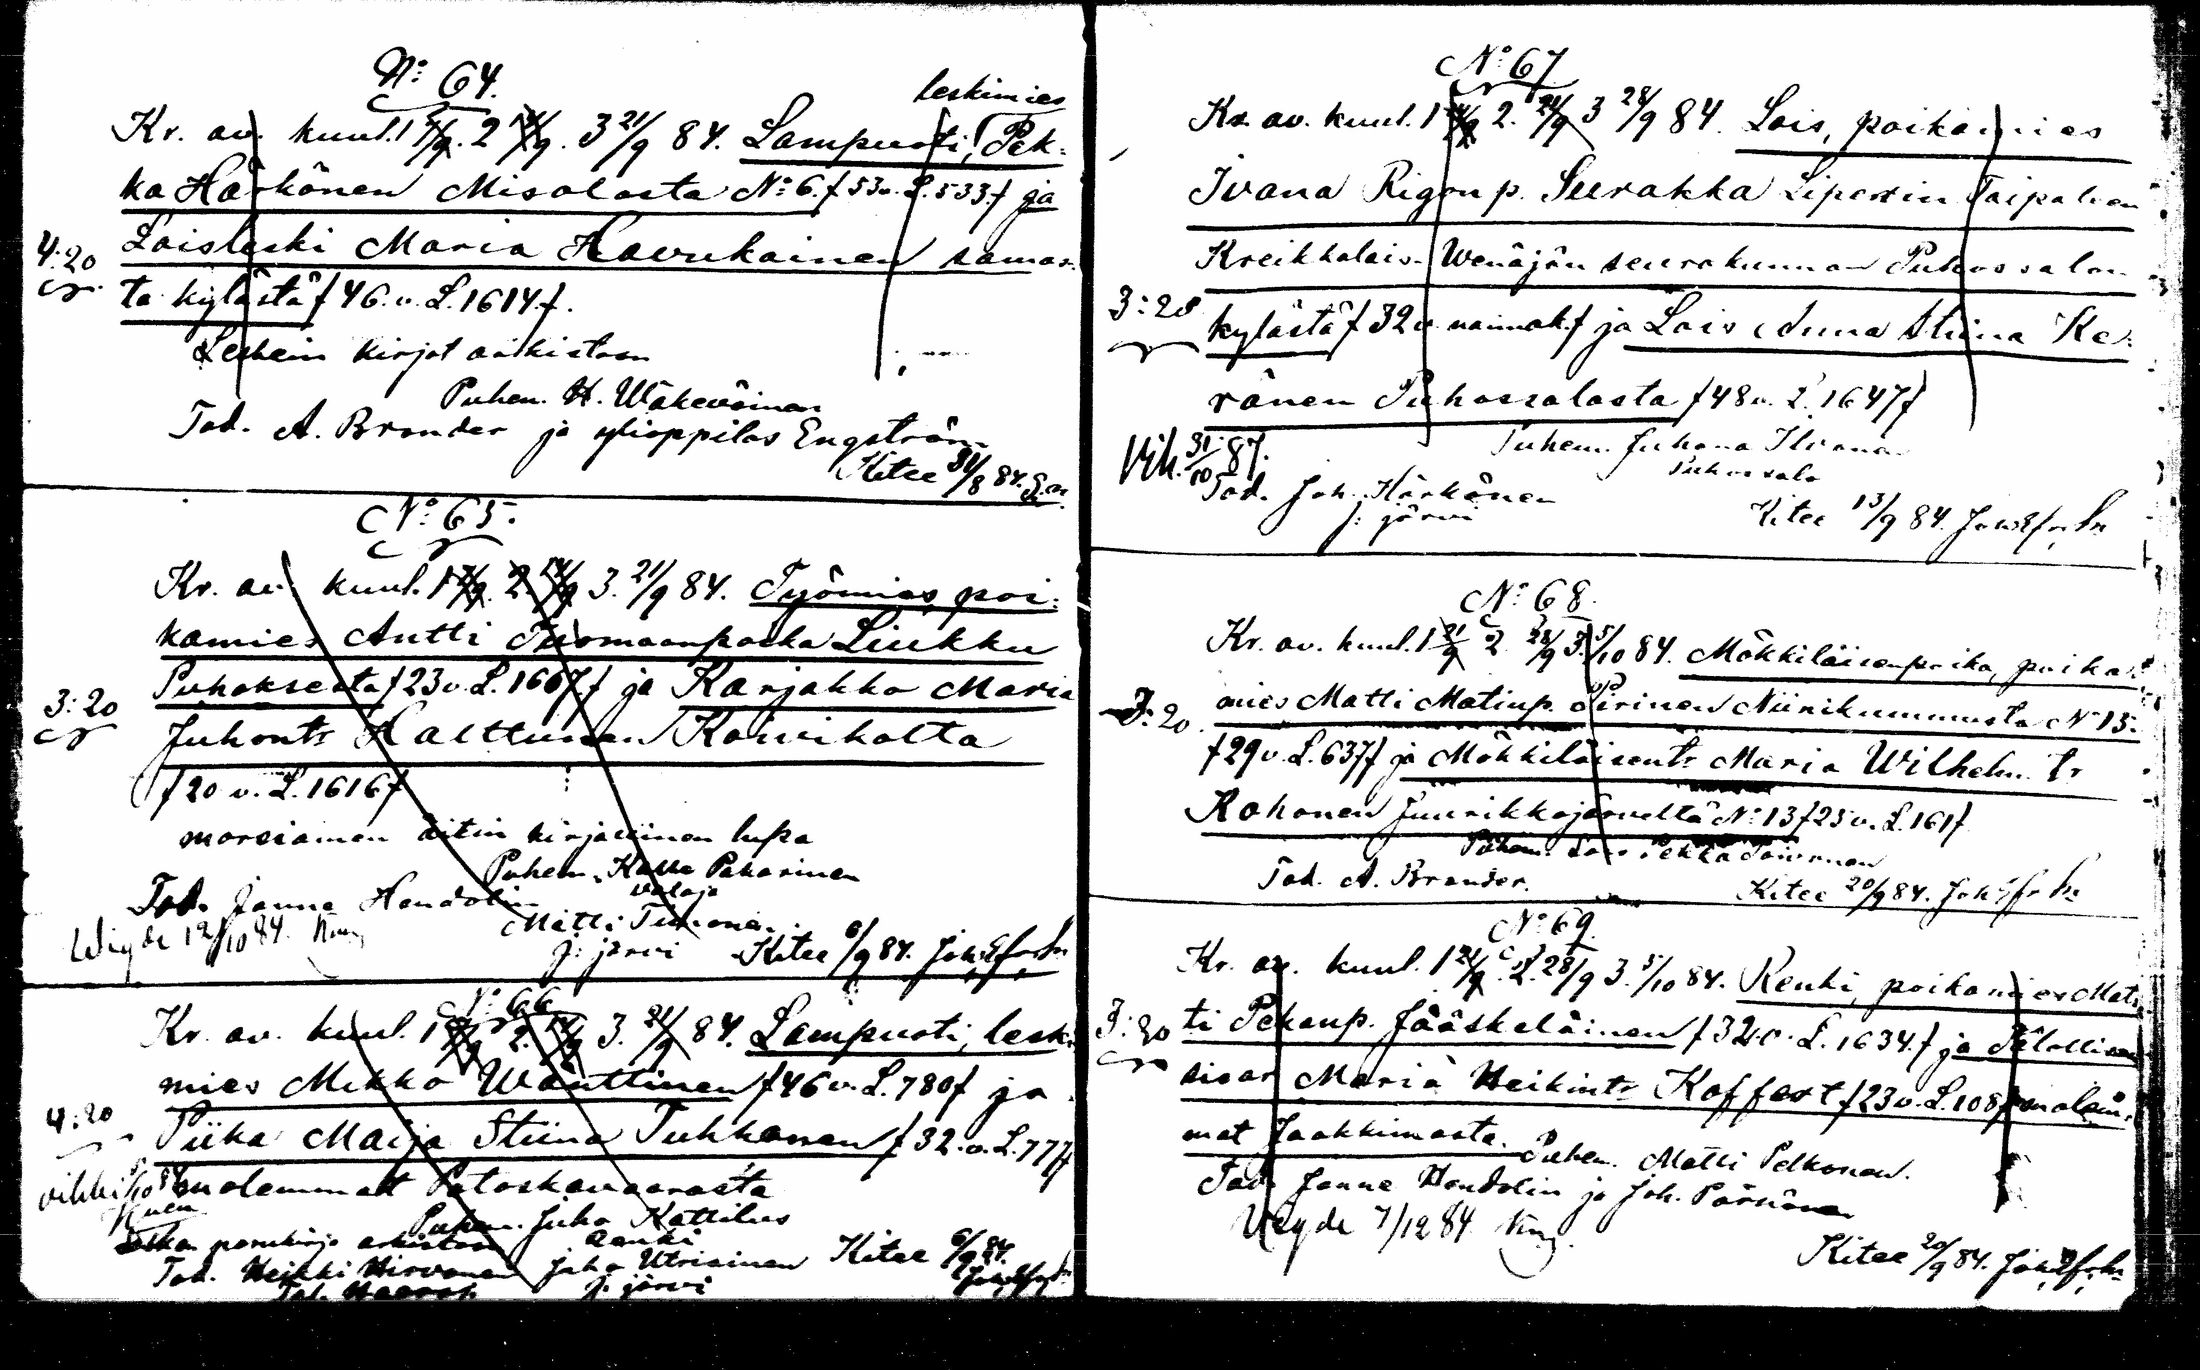 No: 64.
leskimies
Kr. av. kuul. 1 7/9. 2 14/9. 3 21/9 84. Lampuoti, Pek-
ka Härkönen Misolasta No: 6. f 53 v. L. 533 f ja
4:20 Loisleski Maria Havukainen samas-
ta kylästä f 46. v. L. 1614 f.
Leskein kirjat arkistosn
Puhem. H. Wäkeväinen
Tod. A. Brander ja ylioppilas Engström
Kitee 31/8 84.
No: 65.
Kr. av. kuul. 1 7/9. 2. 14/9 3. 21/9 84. Työmies, poi-
kamies Antti Tuomaanpoika Liukku
Puhoksesta f 23 v. L. 1667 f ja Karjakko Maria
3:20 Juhontr Halttunen Koivikolta
f 20 v. L. 1616 f
morsiamen äitin kirjallinen lupa
Puhem. Kalle Pakarinen
Tod. Janne Handolin
Matti Timonen
j: järvi
Wigde 12/10 84.
Kitee 6/9 84.
No: 66
Kr. av. kuul. 1 7/9 2. 14/9 3. 21/9 84. Lampuoti, leski
mies Mikko Wänttinen f 46 v. L. 780 f ja
4:20 Piika Maija Stiina Tuhkanen f 32. v. L. 777 f
vihki
molemmat Potoskavaarasta
Puhem. Juho Kattilus
renki
perukirja arkistosn
Tod. Heikki Hirvonen Juho Utriainen
j. järvi
Kitee 6/9 84.
No: 67
Kr. av. kuul. 1 14/9 2. 21/9 3 28/9 84. Lois, poikamies
Ivana Rigorip. Seurakka Liperin Taipaleen
Kreikkalais-Wenäjän seurakunnan Puhossalon
3:20 kylästä f 32 v. naimat. f ja Lois Anna Stiina Ke-
ränen Puhossalosta f 48 v. L. 1647 f
Vih. 31/10 87.
Puhem. Juhana Ilvonen
Puhossalo
Tod. Joh. Härkönen
j: järvi
Kitee 13/9 84.
No: 68.
Kr. av. kuul. 1 21/9 2 28/9 3. 5/10 84. Mökkiläisenpoika, poika-
3:20. mies Matti Matinp. Pirinen Niinikummusta No 15.
f 29 v. L. 637 f ja Mökkiläisentr Maria Wilhelm. tr
Rohonen Juurikkajärveltä No: 13 f 25 v. L. 161 f
Puhem. Lois Pekka Toivonen
Tod. A. Brander.
Kitee 20/9 84.
No: 69.
Kr. av. kuul. 1 21/9. 2. 28/9 3. 5/10 84. Renki, poikamies Mat-
3:20 ti Pekanp. Jääskeläinen f 32 v. L. 1634. f ja Talollisen
sisar Maria Heikintr Koffert f 23 v. L. 108 f molem-
mat Jaakkimasta.
Puhem. Matti Pelkonen.
Tod. Janne Handolin ja Joh. Pärnänen
Vigde 7/12 84
Kitee 20/9 84.